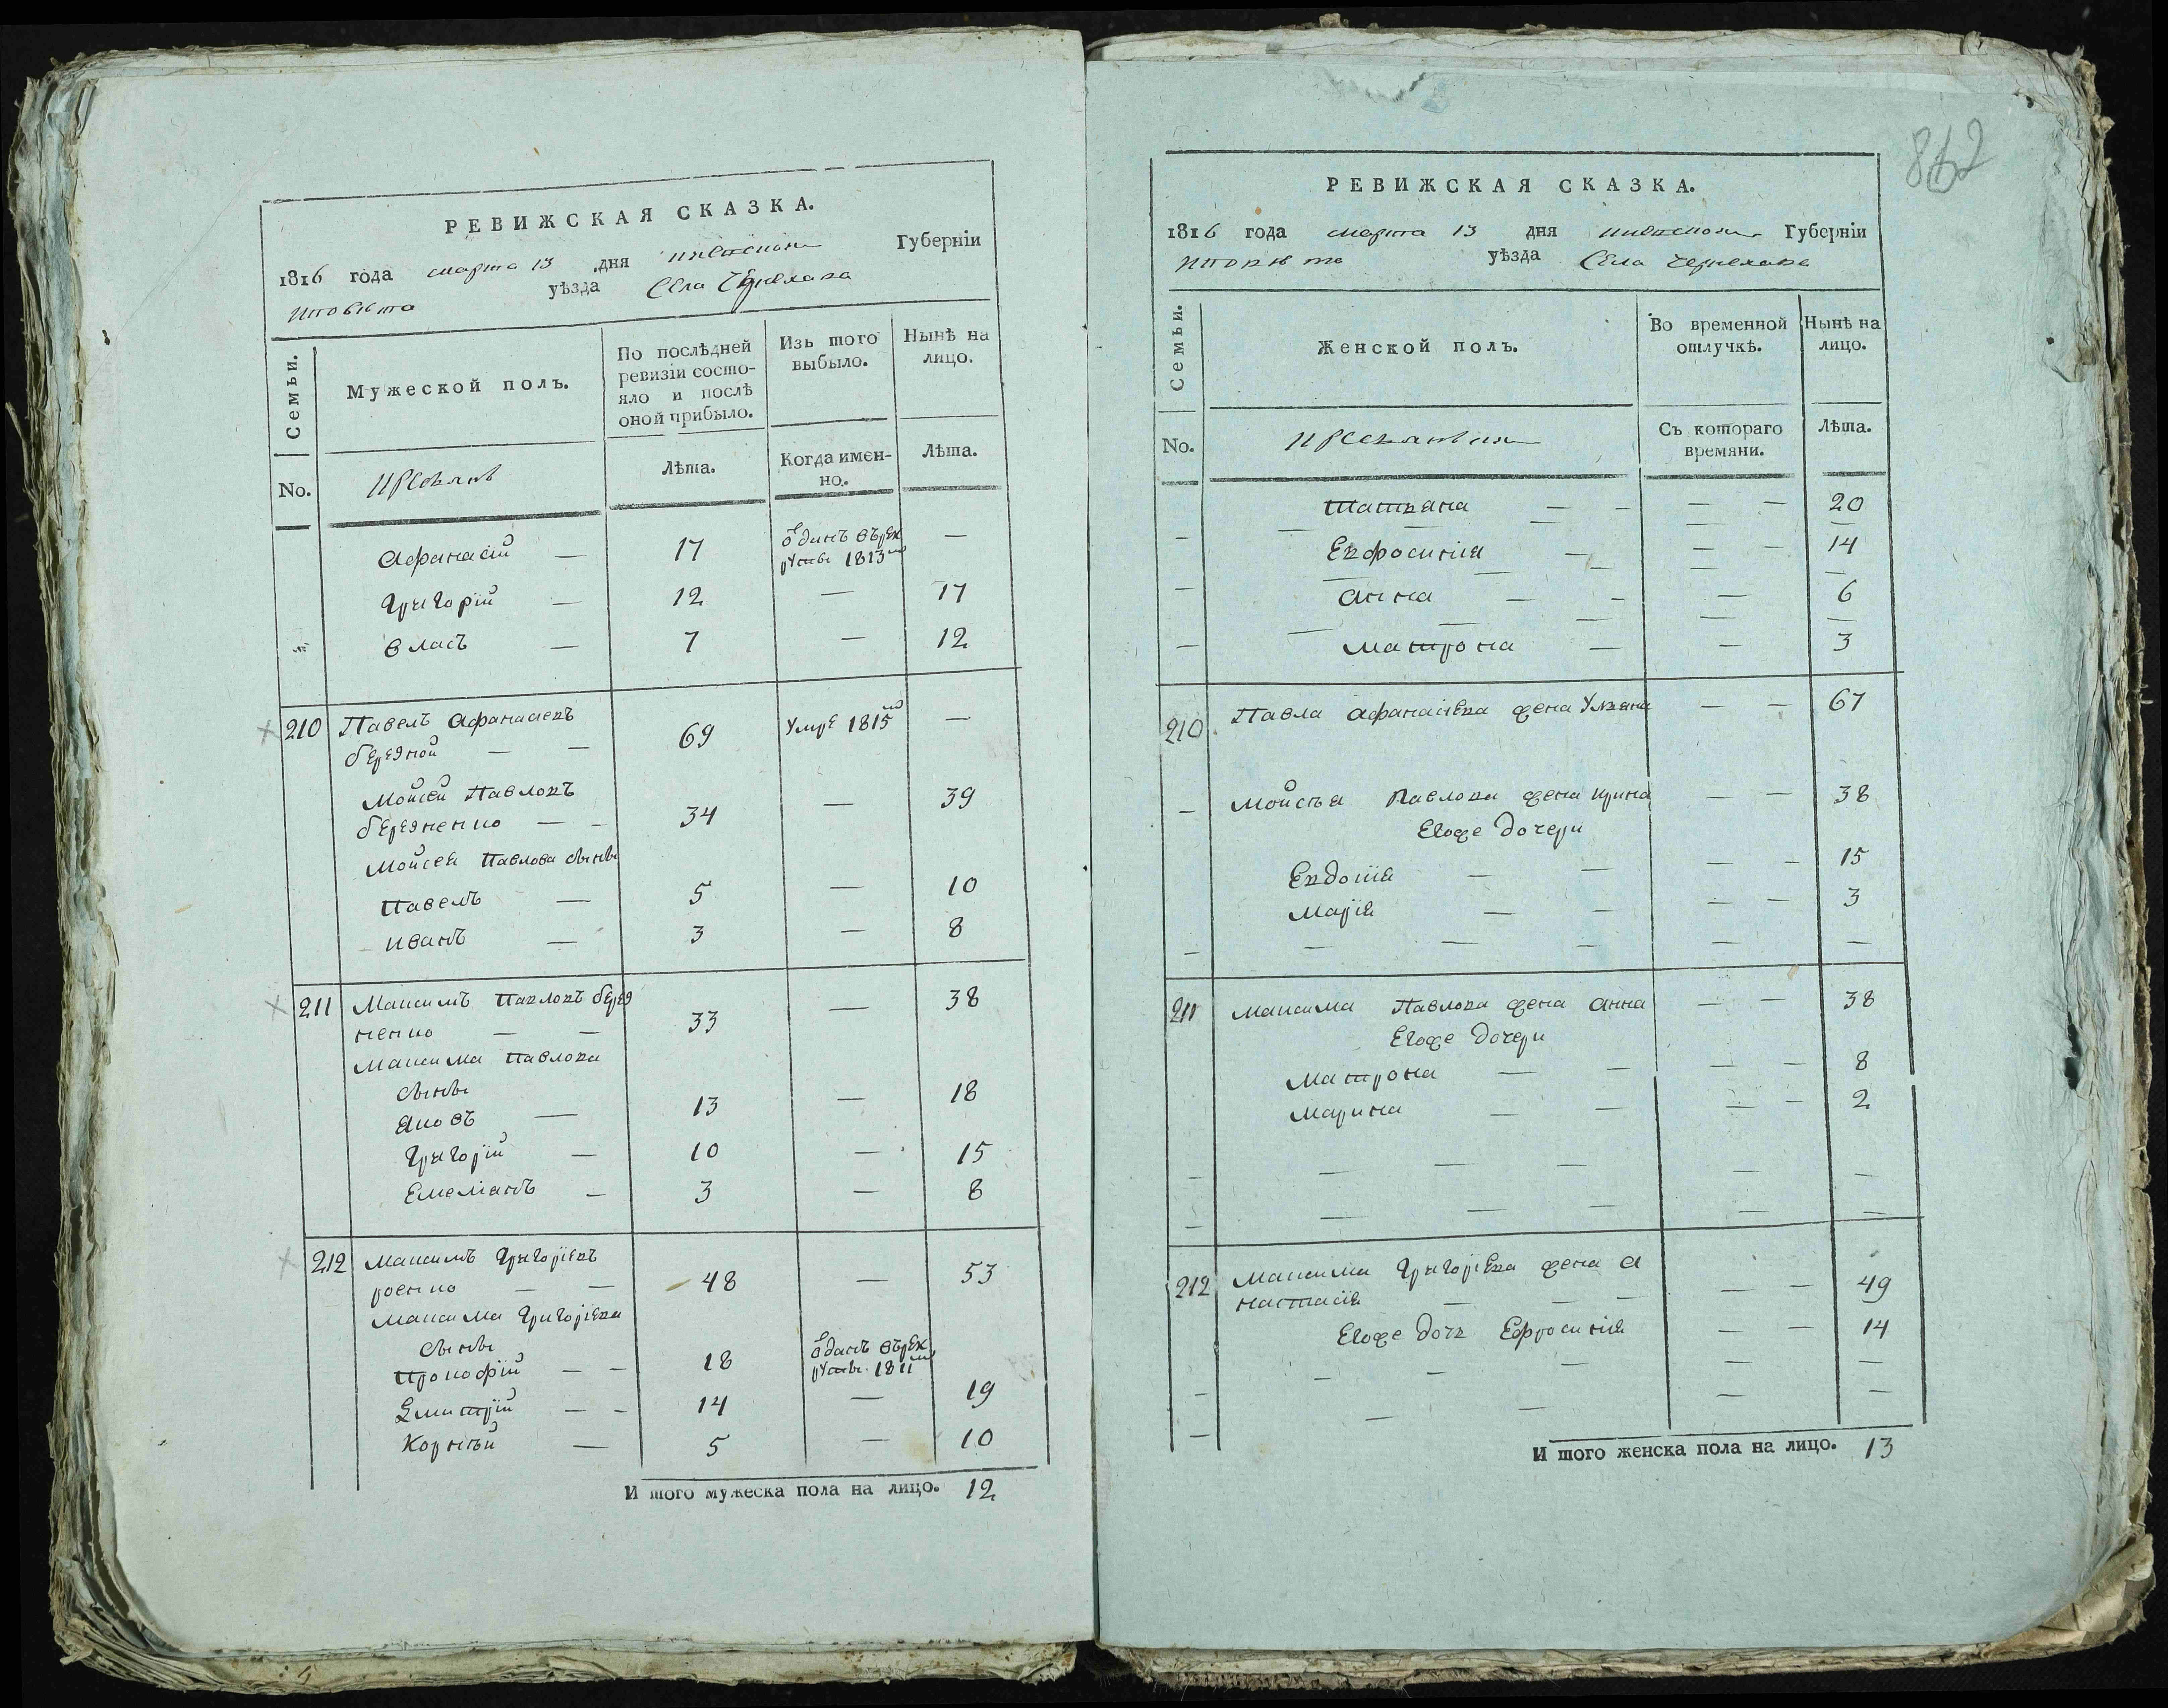 РЕВИЖСКАЯ СКАЗКА.
1816 года марта 13 дня Губерніи
уѣзда Села Черняхова
Семьи.
Мужеской полъ.
По послѣдней ревизіи состояло и послѣ оной прибыло.
Изъ того выбыло.
Нынѣ на лицо.
No.
Лѣта.
Когда именно.
Лѣта.
Афанасій — 17 одинъ въ рек
руты 1813 —
Григорій — 12 — 17
Власъ — 7 — 12
210 Павелъ Афанасіевъ
бережной — — 69 Умре 1815 —
Мойсей Павловъ
бережненко — — 34 — 39
Мойсея Павлова сыны
Павелъ — 5 — 10
Иванъ — 3 — 8
211 Максимъ Павловъ береж
ненко — — 33 — 38
Максима Павлова
сыны
Яковъ — 13 — 18
Григорій — 10 — 15
Емеліанъ — 3 — 8
212 Максимъ Григоріевъ
роенко — — 48 — 53
Максима Григоріева
сыны
Прокофій — — 18 отданъ въ рек
руты 1811
Дмитрій — — 14 — 19
Корнѣй — 5 — 10
И того мужеска пола на лицо. 12
862
РЕВИЖСКАЯ СКАЗКА.
1816 года марта 13 дня Губерніи
уѣзда Села Черняхова
Семьи.
Женской полъ.
Во временной отлучкѣ.
Нынѣ на лицо.
No.
Съ котораго времяни.
Лѣта.
Татьяна — — — — 20
Евфросинія — — — 14
Анна — — — 6
Матрона — — 3
210 Павла Афанасіева жена Ульяна — — 67
Мойсѣя Павлова жена Ирина — — 38
Егоже дочери
Евдокія — — — — 15
Марія — — — — 3
211 Максима Павлова жена Анна — — 38
Егоже дочери
Матрона — — — — 8
Марина — — — — 2
212 Максима Григоріева жена А
настасія — — — — — 49
Егоже дочь Ефросинія — — 14
И того женска пола на лицо. 13